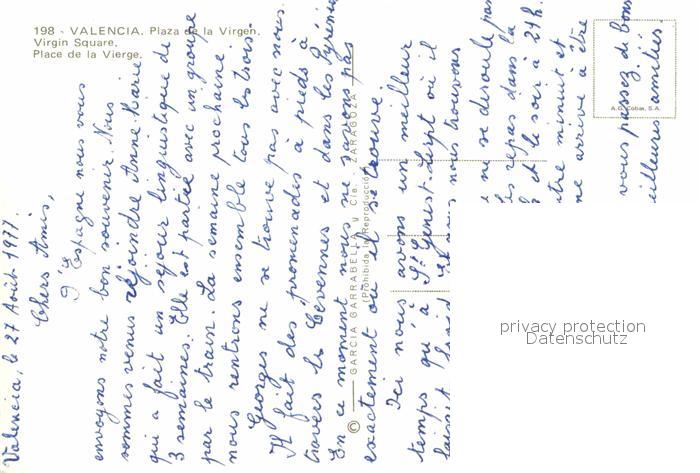 198 - VALENCIA. Plaza de la Virgen.
Virgin Square.
Place de la Vierge.
Valencia, le 27 Août 1977.
Chers Amis,
D'Espagne nous vous
envoyons notre bon souvenir. Nous
sommes venus rejoindre Anne-Marie
qui a fait un séjour linguistique de
3 semaines. Elle est partie avec un groupe
par le train. La semaine prochaine
nous rentrons ensemble tous les trois.
Georges ne se trouve pas avec nous.
Il fait des promenades à pieds à
travers les Cevennes et dans les Pyrénées
En ce moment nous ne savons pas
exactement où il se trouve
Ici nous avons un meilleur
temps qu'à St Genest-Lerpt où il
faisait froid et nous nous trouvons
ne se deroule pas
les repas dans la
et le soir à 21h.
minuit et
arrive à être
vous passez de bons
meilleures amitiés.
© GARCIA GARRABELLA y Cia. ZARAGOZA
(Prohibida la Reproducción)
A.G. Cobas, S.A.
privacy protection
Datenschutz